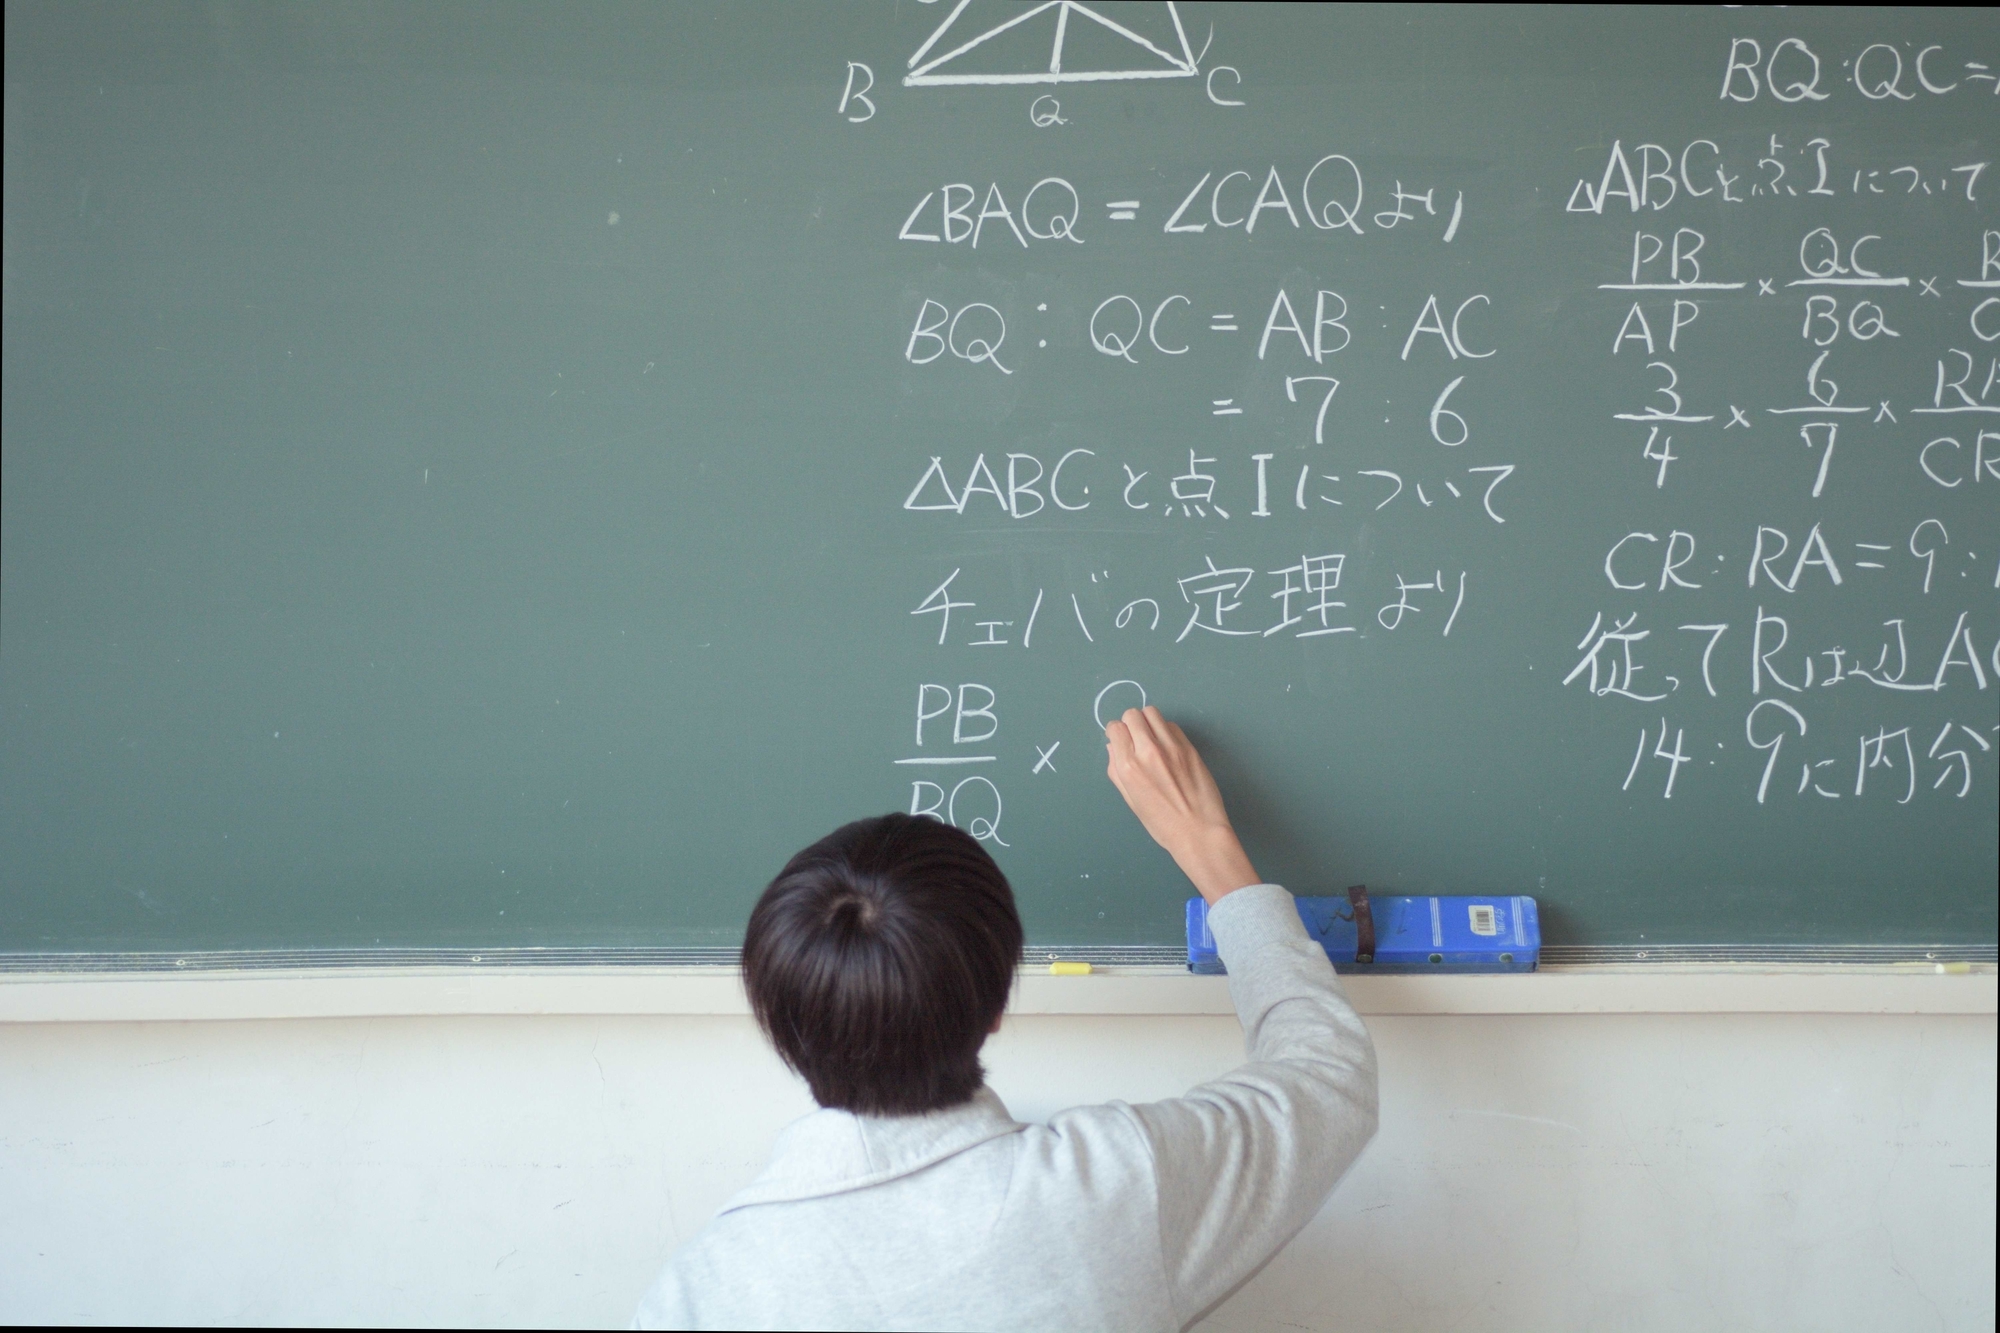 B
Q
C
∠BAQ = ∠CAQより
BQ : QC = AB : AC
= 7 : 6
△ABCと点Iについて
チェバの定理より
PB
×
BQ
BQ:QC=
△ABCと点Iについて
PB/AP × QC/BQ ×
3/4 × 6/7 × RA/CR
CR:RA=9:
従ってRは辺AC
14:9に内分